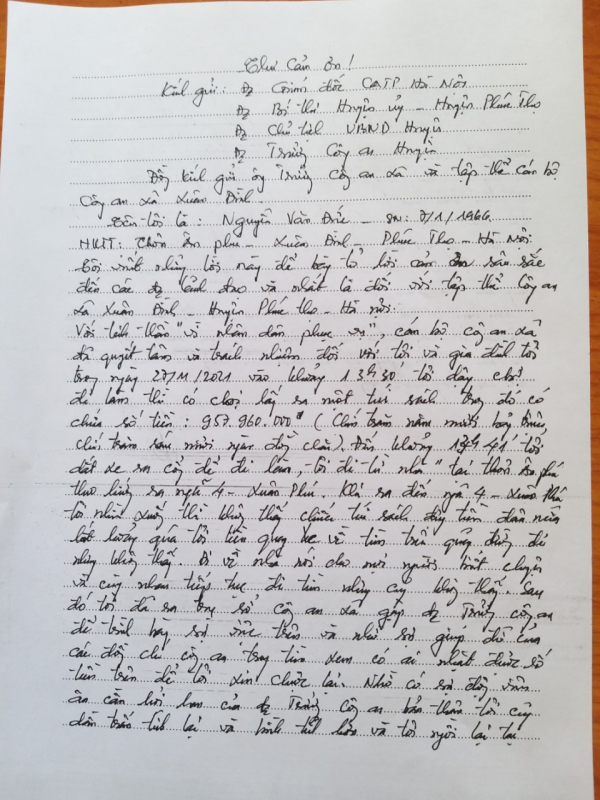 Thư Cảm ơn!
Kính gửi: Đ/c Giám đốc CATP Hà Nội
Đ/c Bí thư Huyện ủy - Huyện Phúc Thọ
Đ/c Chủ tịch UBND Huyện
Đ/c Trưởng Công an Huyện
Đồng kính gửi ông Trưởng công an xã và tập thể cán bộ
Công an xã Xuân Đình.
Tên tôi là: Nguyễn Văn Đức - SN: 7/1/1966
HKTT: Thôn Ân phú - Xuân Đình - Phúc Thọ - Hà Nội.
Tôi viết những lời này để bày tỏ lời cảm ơn sâu sắc
đến các đ/c lãnh đạo và nhất là đối với tập thể Công an
xã Xuân Đình - Huyện Phúc thọ - Hà nội.
Với tinh thần "vì nhân dân phục vụ", cán bộ công an xã
đã quyết tâm và trách nhiệm đối với tôi và gia đình tôi
trong ngày 27/11/2021 vào khoảng 13h30' tôi dậy
đi làm thì có lấy ra một túi sách trong đó có
chứa số tiền: 957.960.000đ (Chín trăm năm mươi bảy triệu,
chín trăm sáu mươi ngàn đồng chẵn). Đến khoảng 13h41' tôi
dắt xe ra cổng để đi làm, tôi đi từ nhà tại thôn Ân phú
theo hướng ra ngã 4 - Xuân Phú. Khi ra đến ngã 4 - Xuân Phú
tôi nhìn xuống thì không thấy chiếc túi sách đựng tiền đâu nữa
hốt hoảng quá tôi liền quay xe về tìm trên quãng đường đó
nhưng không thấy. Đi về nhà nói cho mọi người biết chuyện
và cùng nhau tiếp tục đi tìm nhưng cũng không thấy. Sau
đó tôi đã ra trụ sở công an xã gặp đ/c Trưởng công an
để trình bày sự việc trên và nhờ sự giúp đỡ của
các đồng chí công an trong tìm xem có ai nhặt được số
tiền trên để tôi xin chuộc lại. Nhờ có sự động viên
ân cần hỏi han của đ/c Trưởng công an bản thân tôi cũng
dần trấn tĩnh lại và bình tĩnh hơn và tôi ngồi lại tại